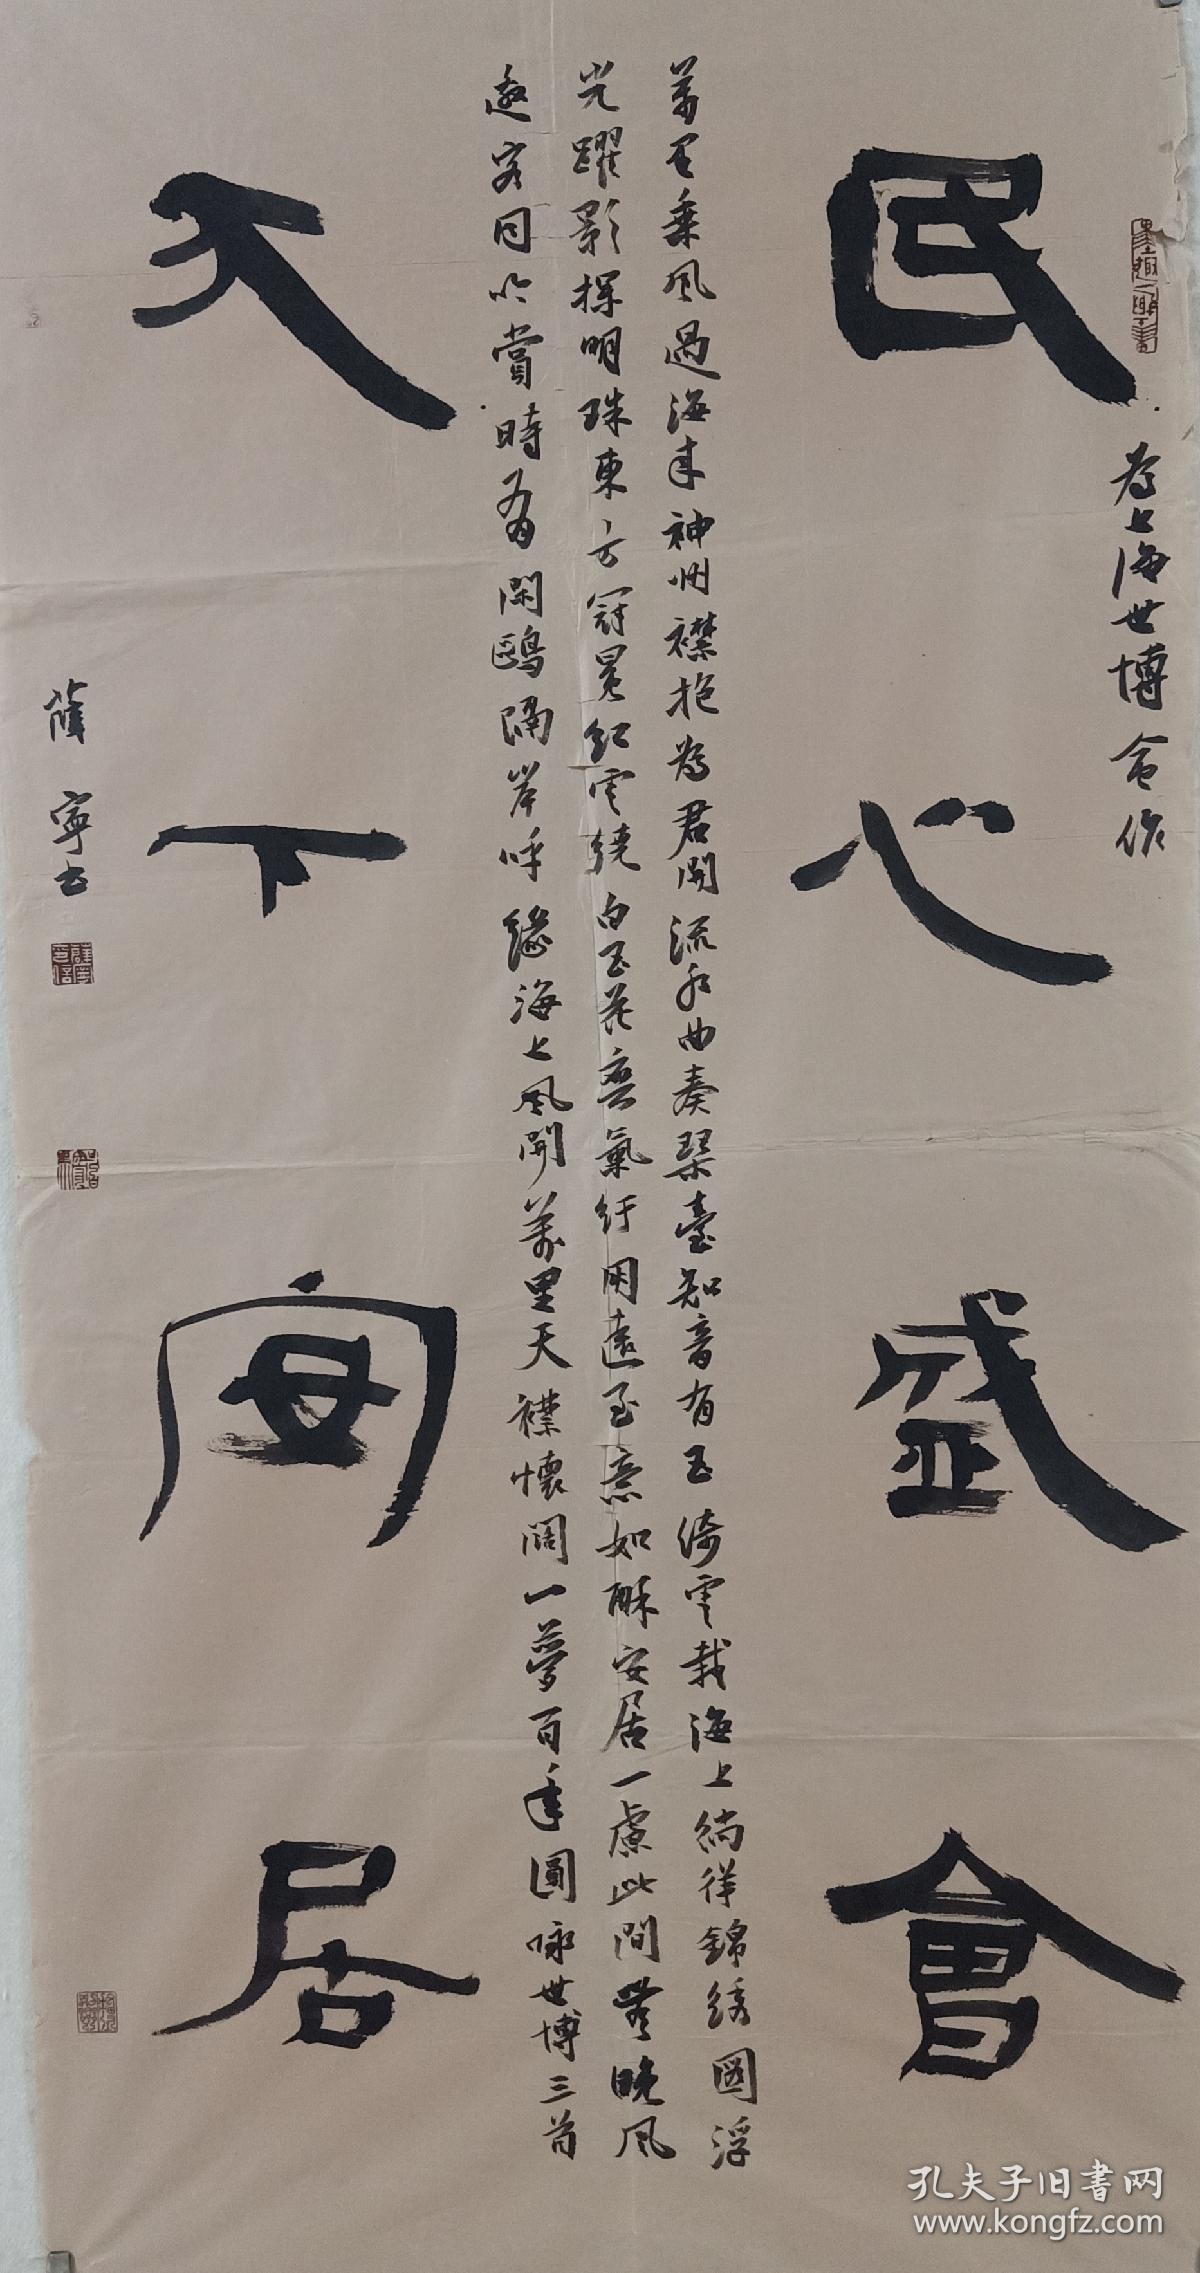 民心盛會
為上海世博會作
萬里乘風過海來神州襟抱為君開流水曲奏琴臺知音有玉倚雲栽海上徜徉錦綉園浮
光躍影探明珠東方冠冕紅雲繞白玉花臺氣紆用遠至意如酥安居一處此間看晚風
邀客同吟賞時有閑鷗隔岸呼緣海上風開萬里天襟懷闊一夢百年圓詠世博三首
天下安居
薛寧書
孔夫子旧书网
www.kongfz.com